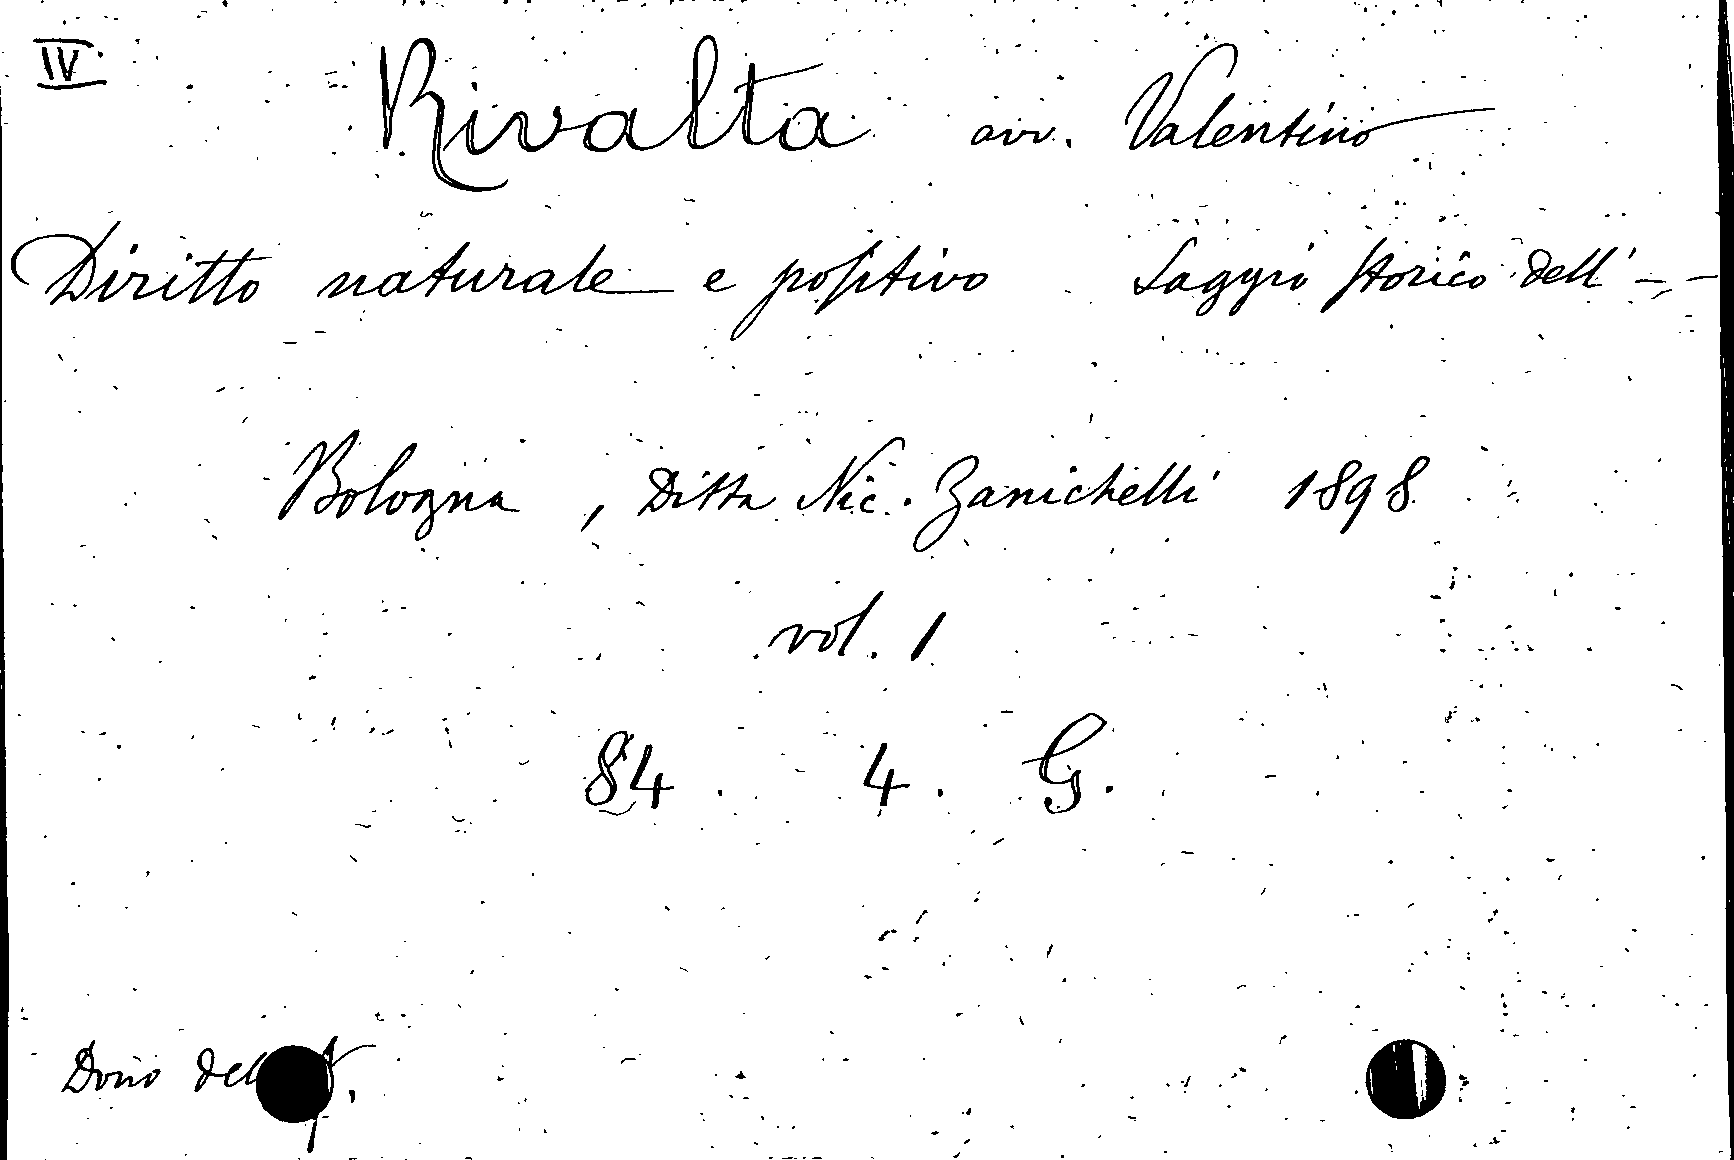 IV
Rivalta avv. Valentino
Diritto naturale e positivo Saggio storico dell' - -
Bologna, Ditta Nic. Zanichelli 1898
vol. 1
84. 4. G.
Dono